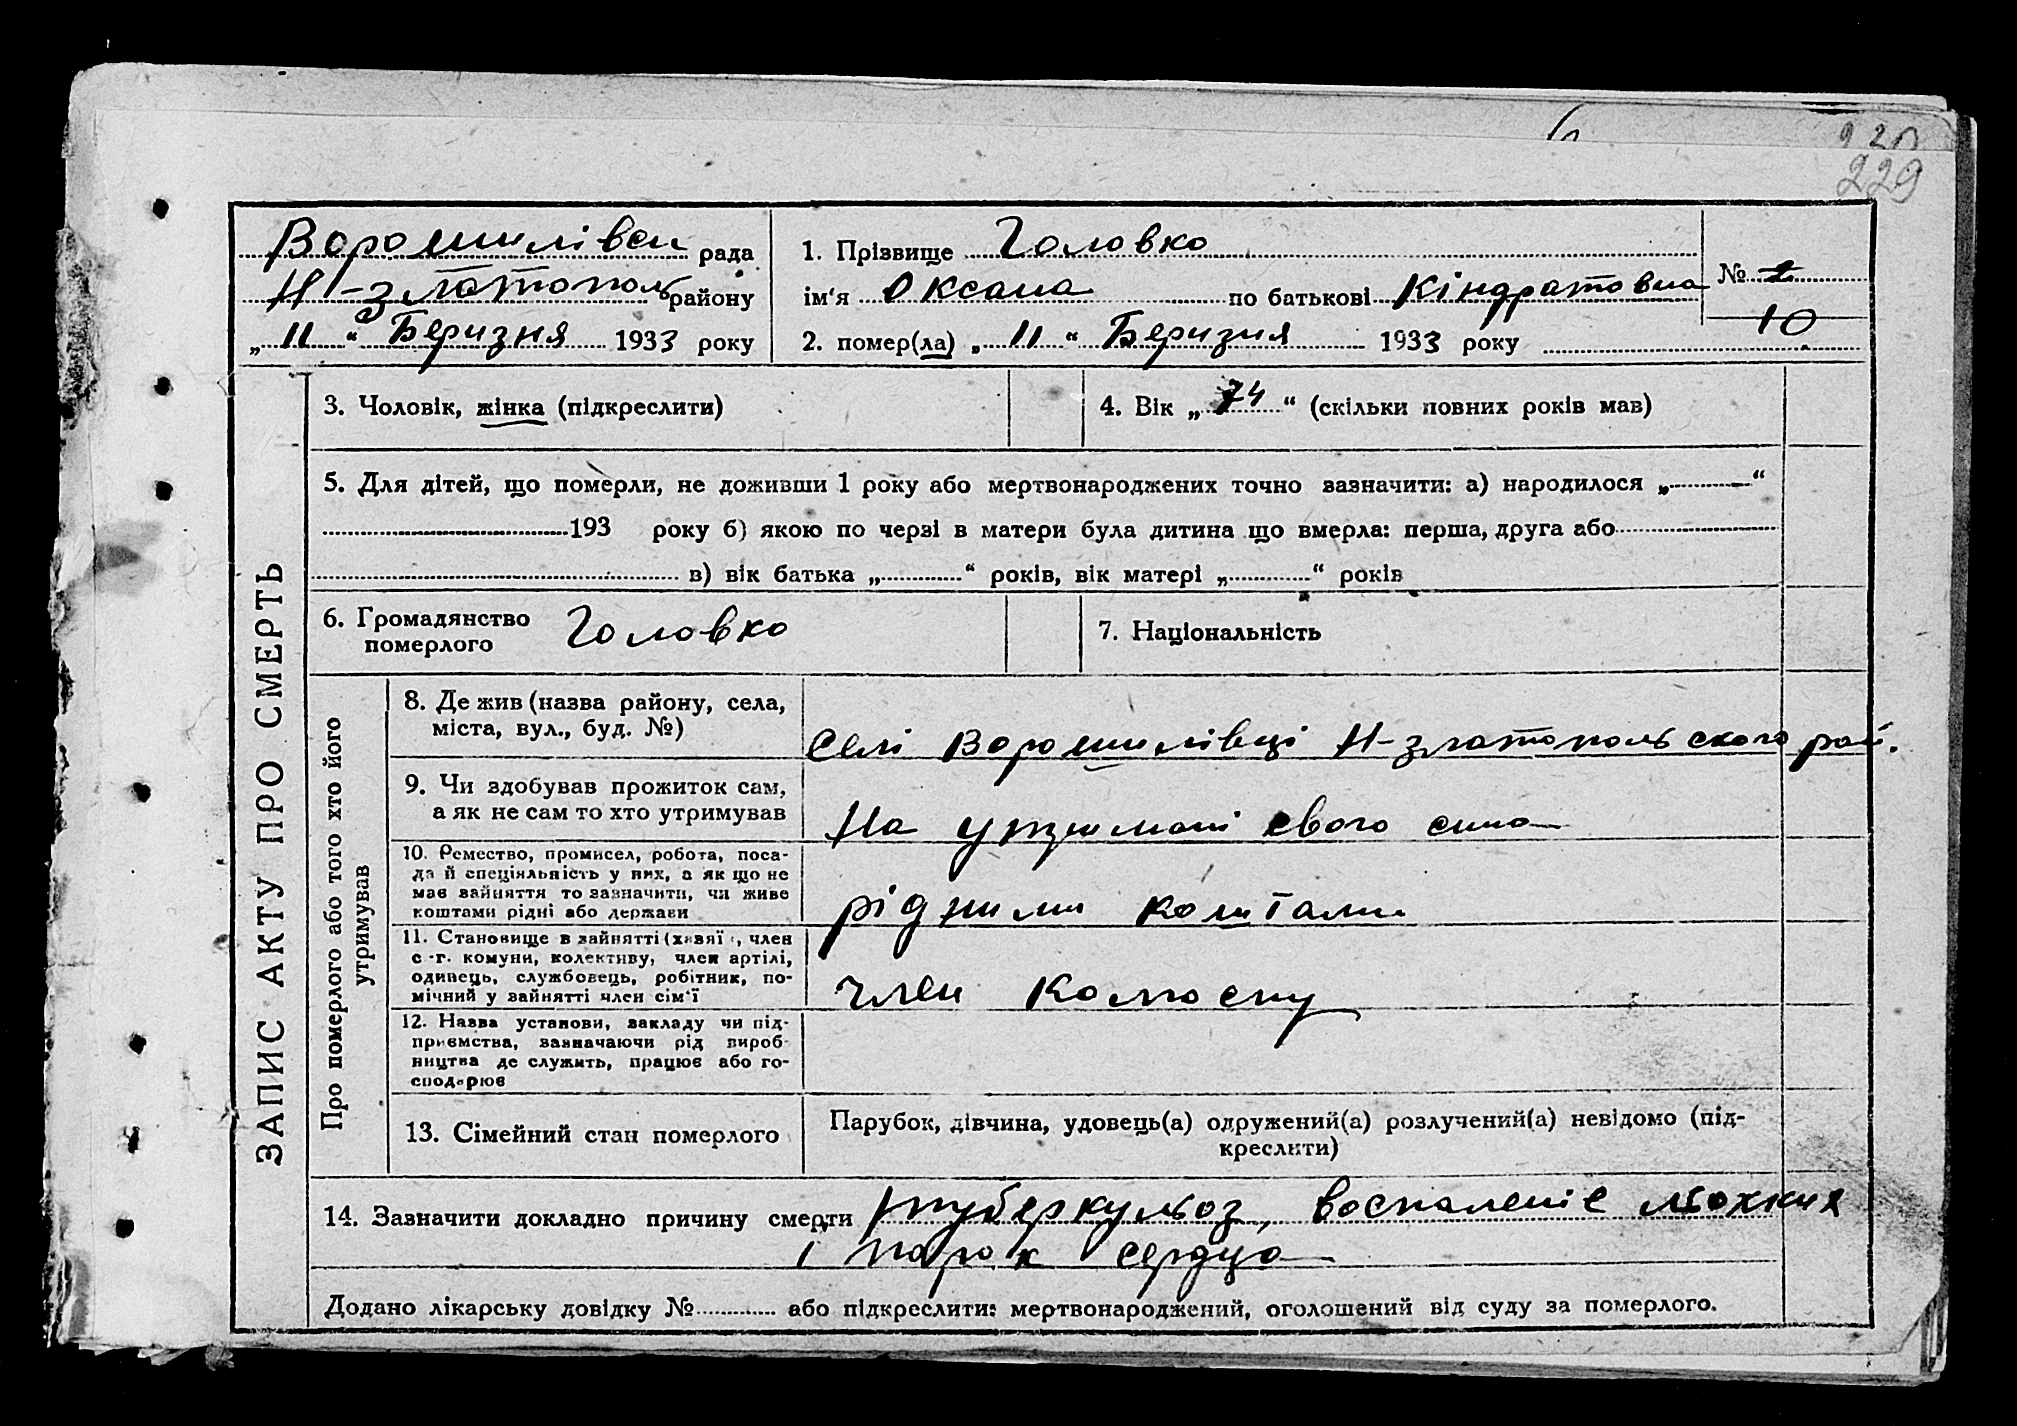 230
229
Ворошилівсн рада
Н-златополь району
„ 11 “ Беризня 1933 року
1. Прізвище Головко
ім'я Оксана по батькові Кіндратовна
2. помер(ла) „ 11 “ Беризня 1933 року
№
10
ЗАПИС АКТУ ПРО СМЕРТЬ
3. Чоловік, жінка (підкреслити)
4. Вік „ 74 “ (скільки повних років мав)
5. Для дітей, що померли, не доживши 1 року або мертвонароджених точно зазначити: а) народилося „ — “
193 року б) якою по черзі в матери була дитина що вмерла: перша, друга або
в) вік батька „ “ років, вік матері „ “ років
6. Громадянство
померлого Головко
7. Національність
Про померлого або того хто його
утримував
8. Де жив (назва району, села,
міста, вул., буд. №)
Селі Ворошилівці Н-златопольского рай.
9. Чи здобував прожиток сам,
а як не сам то хто утримував
На утримані свого сина
10. Ремество, промисел, робота, поса-
да й спеціяльність у них, а як що не
має зайняття то зазначити, чи живе
коштами рідні або держави
рідними коштами
11. Становище в зайнятті (хазяї , член
с.-г. комуни, колективу, член артілі,
одинець, службовець, робітник, по-
мічний у зайнятті член сім'ї
член
12. Назва установи, закладу чи під-
приємства, зазначаючи рід вироб-
ництва де служить, працює або го-
сподарює
13. Сімейний стан померлого
Парубок, дівчина, удовець(а) одружений(а) розлучений(а) невідомо (під-
креслити)
14. Зазначити докладно причину смерти туберкульоз, воспаленіє льохких
і порок сердца
Додано лікарську довідку № або підкреслити: мертвонароджений, оголошений від суду за померлого.